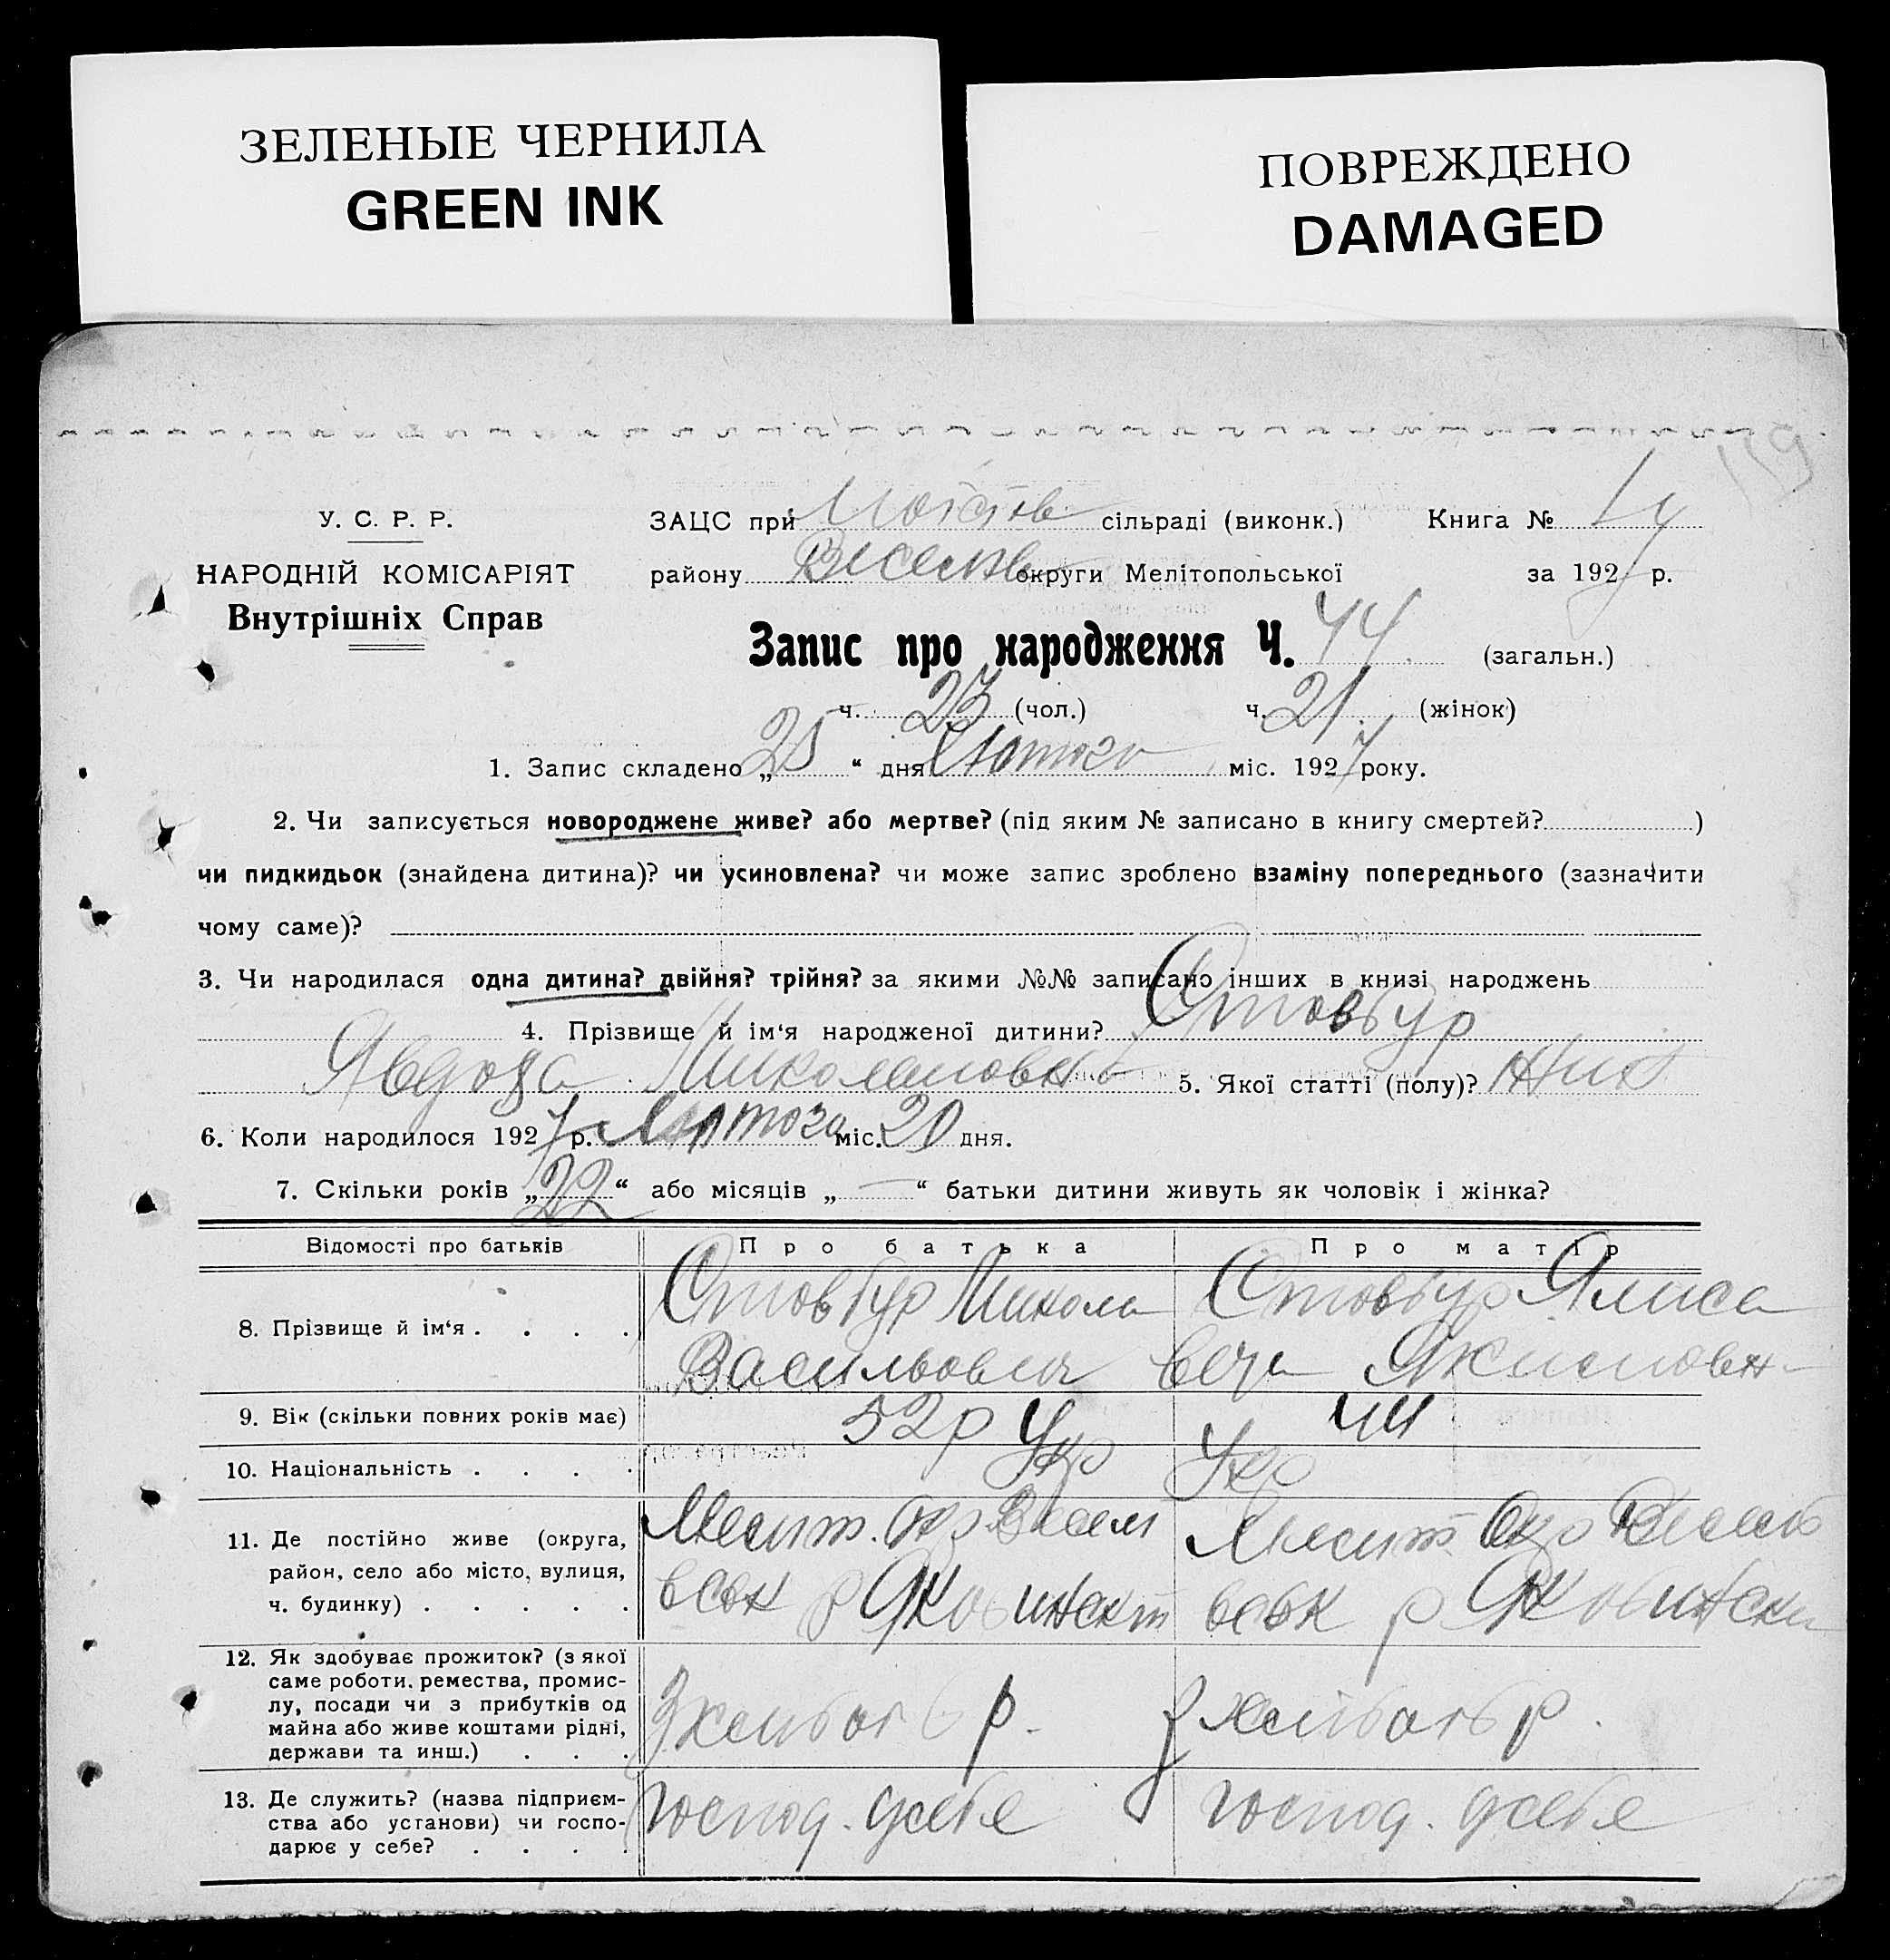 ЗЕЛЕНЫЕ ЧЕРНИЛА
GREEN INK
ПОВРЕЖДЕНО
DAMAGED
У. С. Р. Р.
НАРОДНІЙ КОМІСАРІЯТ
Внутрішніх Справ
ЗАЦС при сільраді (виконк.) Книга №
району Веселів округи Мелітопольської за 1927 р.
Запис про народження Ч. 44 (загальн.)
ч. 23 (чол.) ч. 21 (жінок)
1. Запис складено „25“ дня Лютого міс. 1927 року.
2. Чи записується новороджене живе? або мертве? (під яким № записано в книгу смертей? )
чи пидкидьок (знайдена дитина)? чи усиновлена? чи може запис зроблено взаміну попереднього (зазначити
чому саме)?
3. Чи народилася одна дитина? двійня? трійня? за якими №№ записано інших в книзі народжень
4. Прізвище й ім‘я народженої дитини? Стовбур
Явдоха Миколаиовна 5. Якої статті (полу)? жин
6. Коли народилося 1927 р. Лютого міс. 20 дня.
7. Скільки років „22“ або місяців „—“ батьки дитини живуть як чоловік і жінка?
Відомості про батьків Про батька Про матір
8. Прізвище й ім‘я . . . . Стовбур Микола Стовбур Ялиса
Васильович вета
9. Вік (скільки повних років має) 52р 44
10. Національність . . . . Укр Укр
11. Де постійно живе (округа, Мелит. Окр Весел Мелит Окр Весело
район, село або місто, вулиця,
ч. будинку) . . . . .
12. Як здобуває прожиток? (з якої
саме роботи, ремества, промис-
лу, посади чи з прибутків од З хлибоr б р. З хлибоr б р.
майна або живе коштами рідні,
держави та инш.) . . .
13. Де служить? (назва підприєм-
ства або установи) чи госпо- господ. усебе господ. усебе
дарює у себе? . . . .